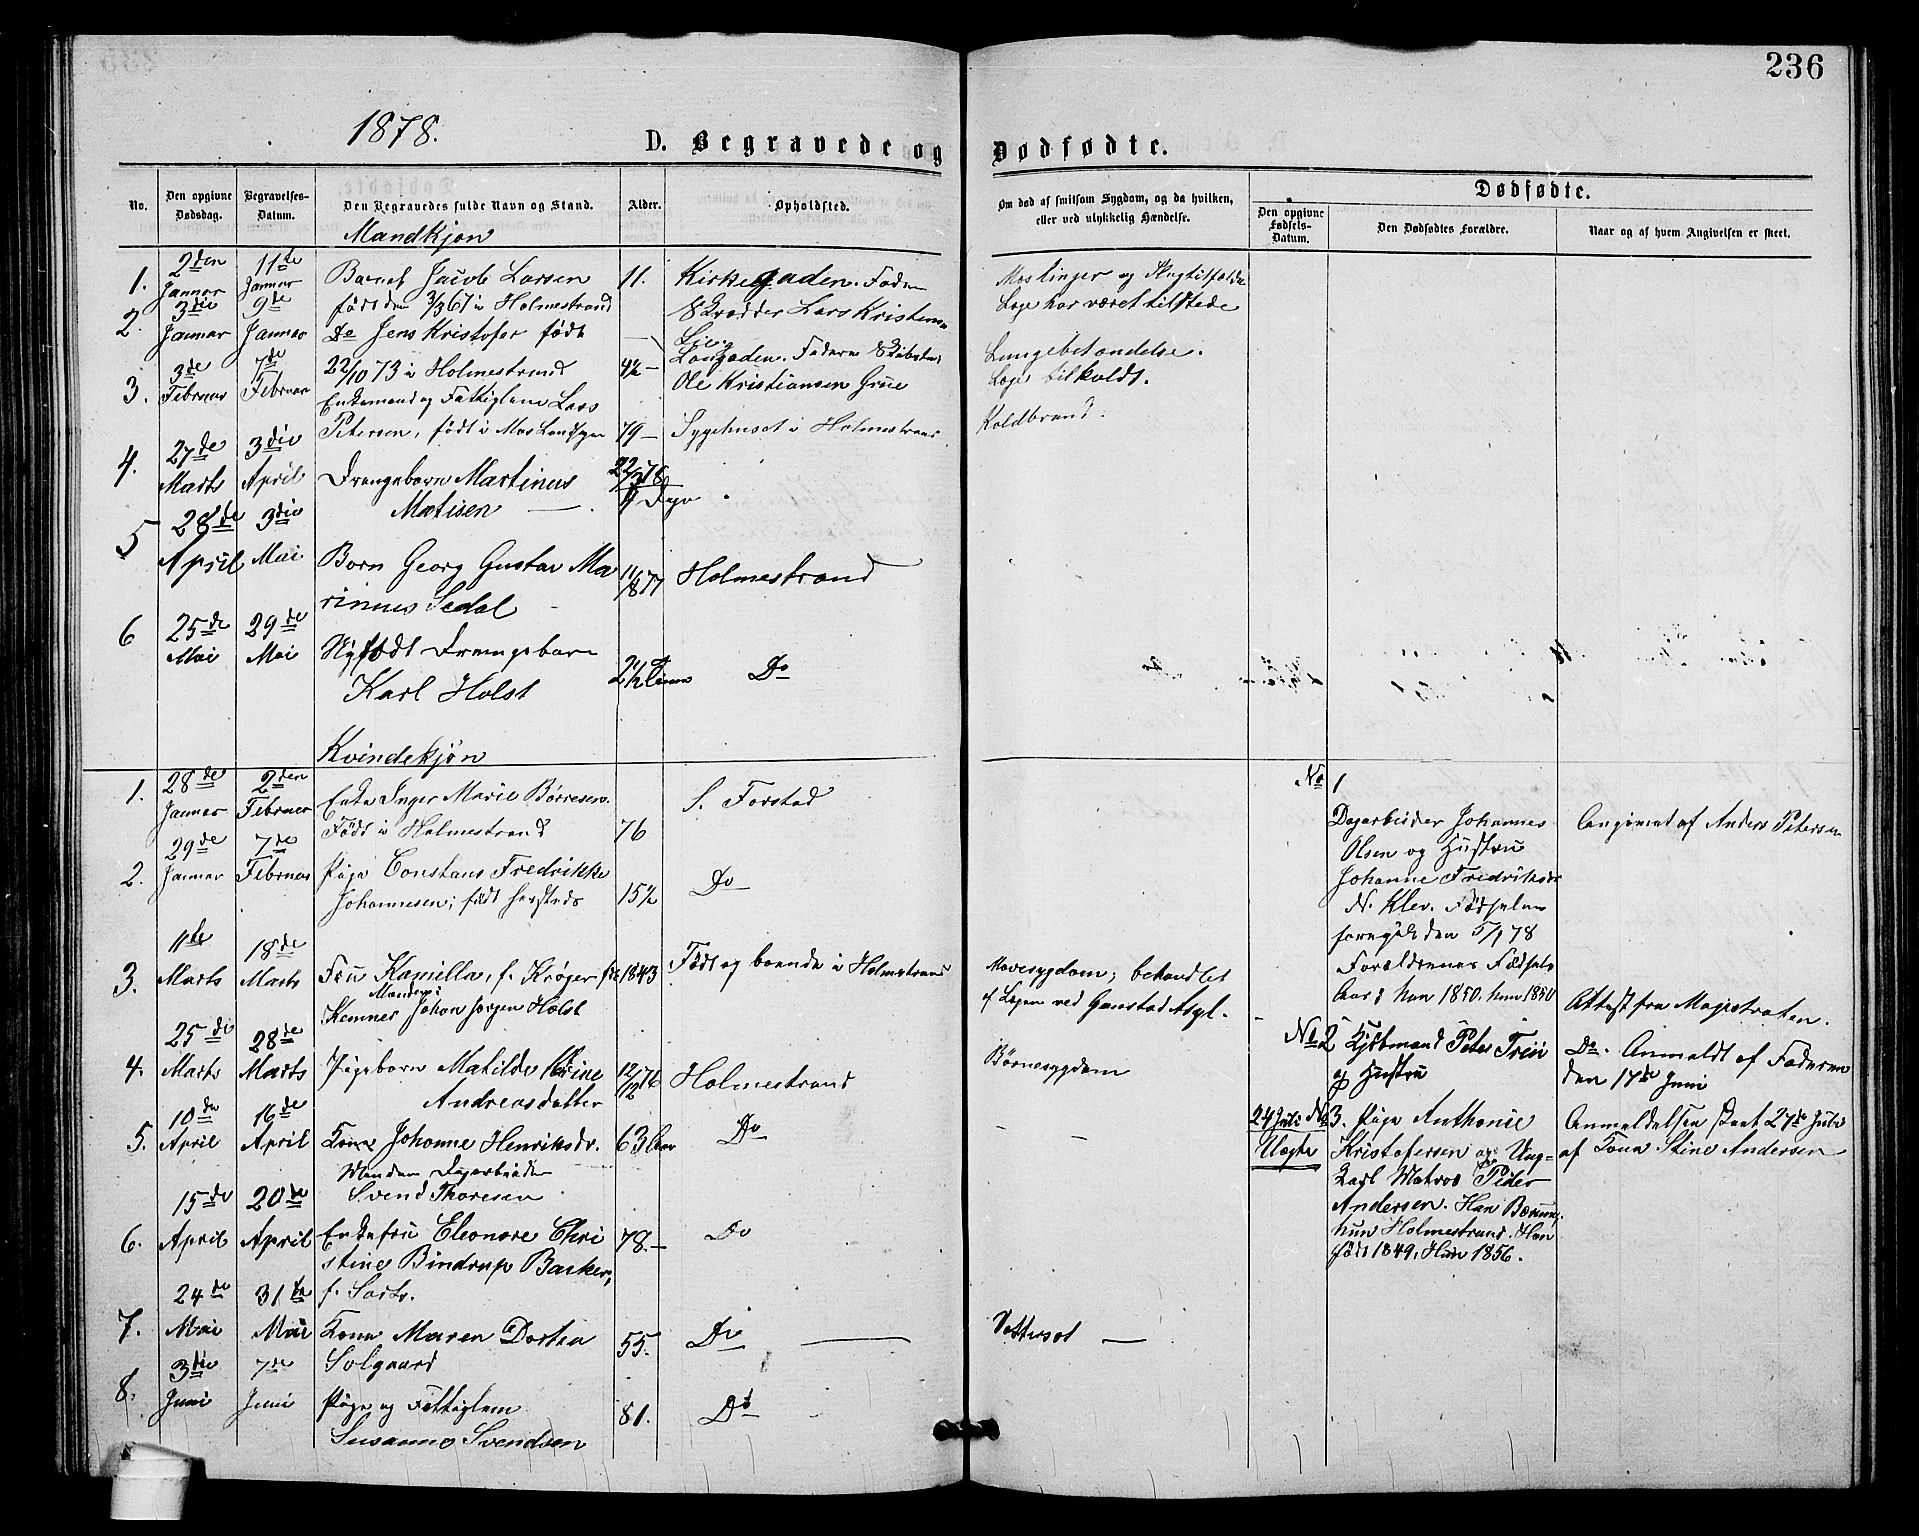 236
1878.
D. Begravede og Dødfødte.
No.
Den opgivne Dødsdag.
Begravelses-Datum.
Den Begravedes fulde Navn og Stand.
Alder.
Opholdsted.
Om død af smitsom Sygdom, og da hvilken, eller ved ulykkelig Hændelse.
Dødfødte.
Den opgivne Fødsels-Datum.
Den Dødfødtes Forældre.
Naar og af hvem Angivelsen er skeet.
Mandkjøn
1. 2den Januar 11te Januar
Barnet Jacob Larsen 11. Kirkegaden. Faderen
født den 3/3 67 i Holmestrand Skrædder Lars Kristensen
Læge har været tilstede
2. 3die Januar 9de Januar
Do Jens Kristofer født
22/10 73 i Holmestrand 4½ — Langgaden. Faderen
Ole Kristiansen Grue
Lungebetændelse.
Læge tilkaldt.
3. 3de Februar 7de Februar
Enkemand og Fattiglem Lars
Petersen, født i Mos Landsogn 79 — Sygehuset i Holmestrand
Koldbrand.
4. 27de Marts 3die April
Drengebarn Martinus 22/3 78
Matisen — Dage
5 28de April 3die Mai
Barn Georg Gustav Ma 11/8 77 Holmestrand
rinius Sedal
6 25de Mai 29de Mai
Nyfødt Drengebarn
Karl Holst 2½ Do
Kvindekjøn
1. 28de Januar 2den Februar
Enke Inger Marie Børresen. S. Forstad
Født i Holmestrand 76
2. 29de Januar 7de Februar
Pige Constans Fredrikke Do
Johannesen; født hersteds 15½
3. 11te Marts 18de Marts
Fru Kamilla, f. Krøger 1843 Født og boende i Holmestrand
Manden:
Kemner Johan Jørgen Holst
Mavesygdom; behandlet
af Lægen ved Gaustad Asyl.
4. 25de Marts 28de Marts
Pigebarn Matilde 12/12 76 Holmestrand
Andreasdatter
Børnesygdom
5. 10de April 16de April
Kone Johanne Henriksdr. 63 Aar Do
Manden Dagarbeider
Svend Thoresen
6. 15de April 20de April
Enkefru Eleonore Chri 78. — Do
stine Bindrup Barker,
7. 24de Mai 31te Mai
Kone Maren Dortea 55. Do
Solgaard
Vattersot —
8. 3die Juni 7de Juni
Pige og Fattiglem 81. Do
Susanne Svendsen
No 1
Dagarbeider Johannes
Olsen og Hustru
Johanne Fredriksdr
N. Klev. Fødselen
foregik den 5/1 78
Forældrenes Fødsels
Aar: han 1850. hun 1850
Angivet af Anders Petersen
Attest fra Magistraten.
No 2 Kjøbmand Peter
og Hustru
Do. Anmeldt af Faderen
den 17de Juni
24 Juli No 3. Pige Anthonie
Uægte Kristofersen og Ung-
karl Matros Peder
Andersen. Han Bærum,
hun Holmestrand. Han
født 1849, Hun 1856.
Anmeldelsen skeet 27de Juli
af Kone Stine Andersen